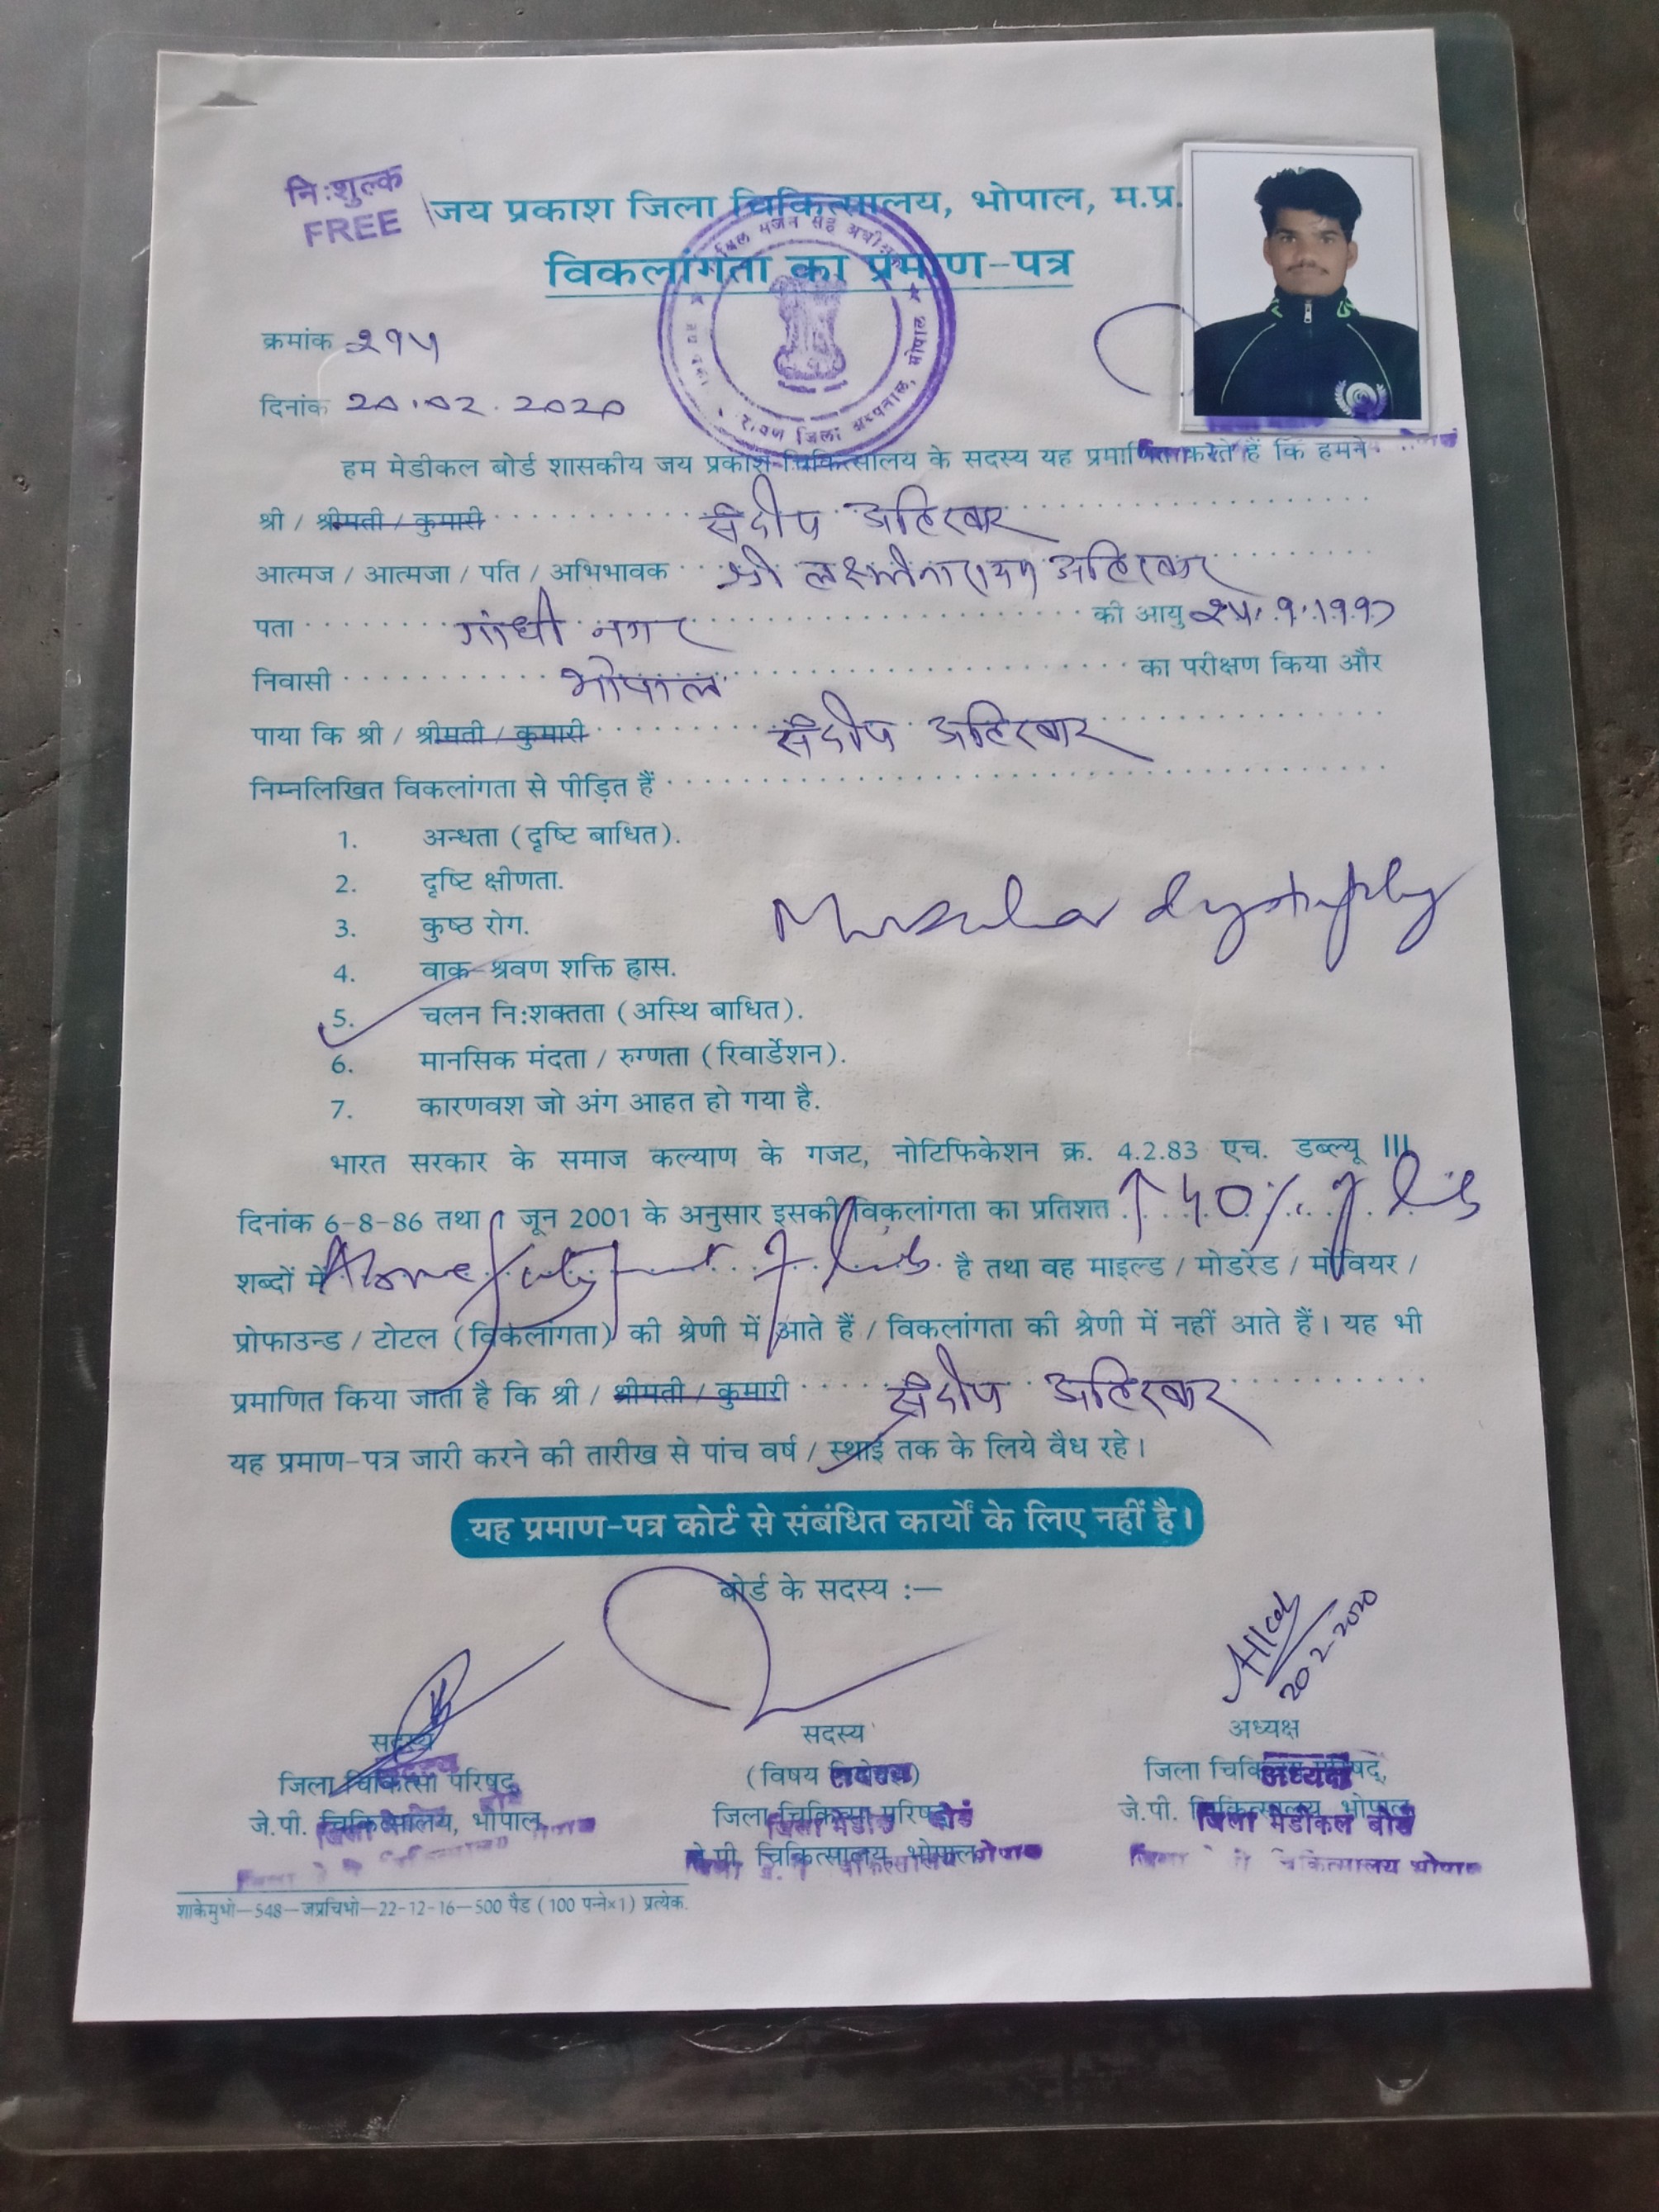 नि:शुल्क
FREE
जय प्रकाश जिला चिकित्सालय, भोपाल, म.प्र.
विकलांगता का प्रमाण-पत्र
क्रमांक २१५
दिनांक 20.02.2020
हम मेडीकल बोर्ड शासकीय जय प्रकाश चिकित्सालय के सदस्य यह प्रमाणित करते हैं कि हमने
श्री / श्रीमती / कुमारी संदीप अहिरवार
आत्मज / आत्मजा / पति / अभिभावक श्री लक्ष्मीनारायण अहिरवार
पता गांधी नगर की आयु
निवासी भोपाल का परीक्षण किया और
पाया कि श्री / श्रीमती / कुमारी संदीप अहिरवार
निम्नलिखित विकलांगता से पीड़ित हैं
1. अन्धता (दृष्टि बाधित).
2. दृष्टि क्षीणता.
Muscular dystrophy
3. कुष्ठ रोग.
4. वाक-श्रवण शक्ति ह्रास.
5. चलन नि:शक्तता (अस्थि बाधित).
6. मानसिक मंदता / रुग्णता (रिवार्डेशन).
7. कारणवश जो अंग आहत हो गया है.
भारत सरकार के समाज कल्याण के गजट, नोटिफिकेशन क्र. 4.2.83 एच. डब्ल्यू III
दिनांक 6-8-86 तथा 1 जून 2001 के अनुसार इसकी विकलांगता का प्रतिशत ↑ 40%
शब्दों में है तथा वह माइल्ड / मोडरेड / मेवियर /
प्रोफाउन्ड / टोटल (विकलांगता) की श्रेणी में आते हैं / विकलांगता की श्रेणी में नहीं आते हैं। यह भी
प्रमाणित किया जाता है कि श्री / श्रीमती / कुमारी संदीप अहिरवार
यह प्रमाण-पत्र जारी करने की तारीख से पांच वर्ष / स्थाई तक के लिये वैध रहे।
यह प्रमाण-पत्र कोर्ट से संबंधित कार्यों के लिए नहीं है।
बोर्ड के सदस्य :—
20-2-2020
सदस्य
जिला चिकित्सा परिषद्
जे.पी. चिकित्सालय, भोपाल
सदस्य
(विषय
जिला चिकित्सा परिषद्
जे.पी. चिकित्सालय, भोपाल
अध्यक्ष
जिला चिकित्सा परिषद्,
जे.पी. चिकित्सालय, भोपाल
अध्यक्ष
जिला मेडीकल बोर्ड
चिकित्सालय भोपाल
शाकेमुभो—548—जप्रचिभो—22-12-16—500 पैड (100 पन्ने×1) प्रत्येक.